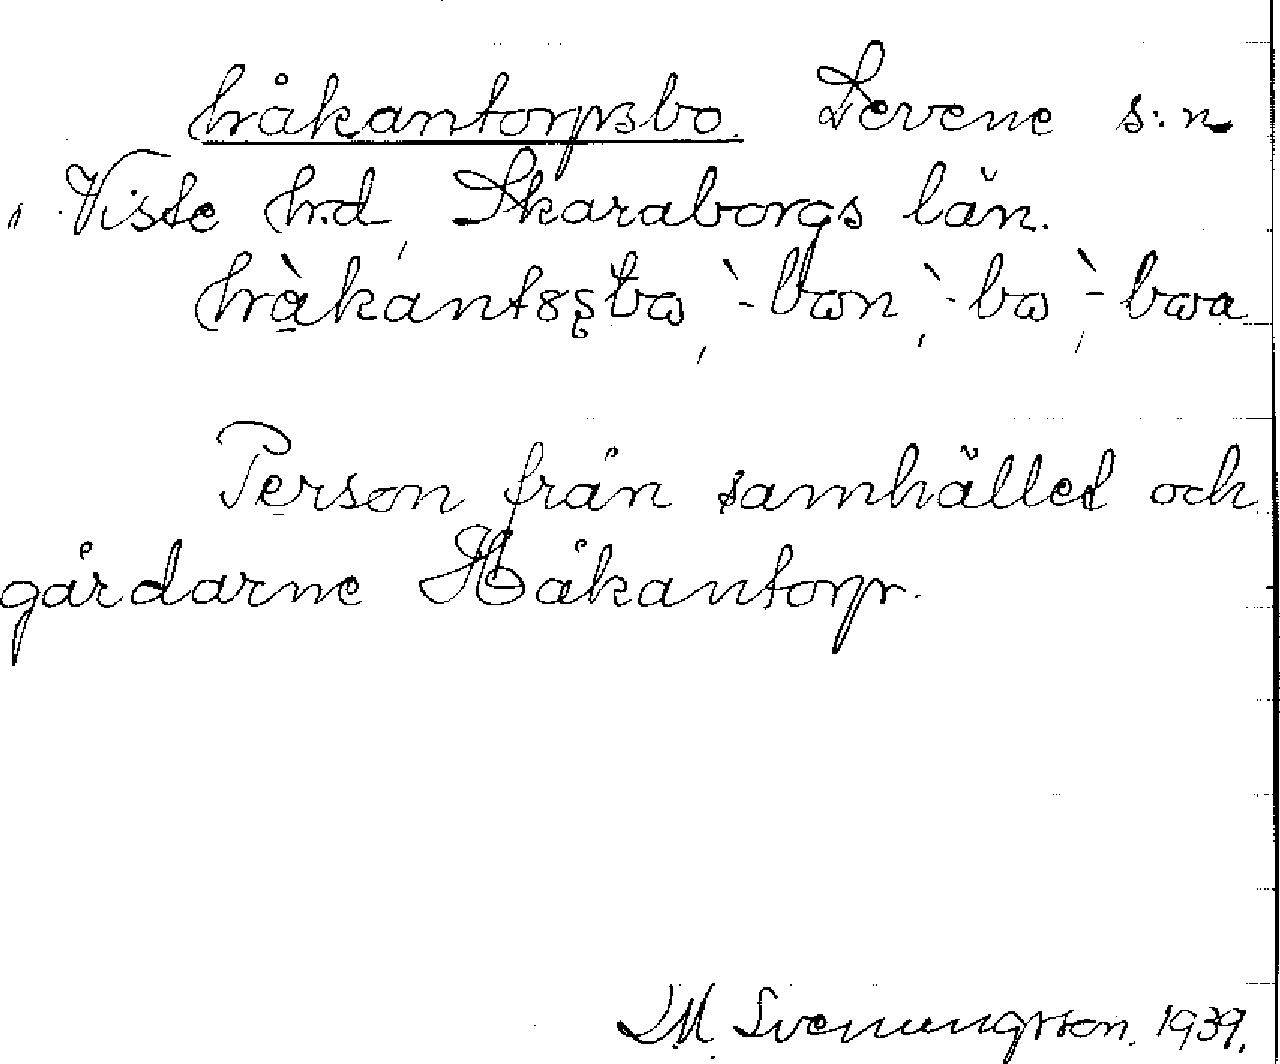 håkantorpsbo. Levene s:n
Viste h:d, Skaraborgs län.
hàkant bo, -bon, -bo, -boa
Person från samhället och
gårdarne Håkantorp.
I M. Svenungsson. 1939.